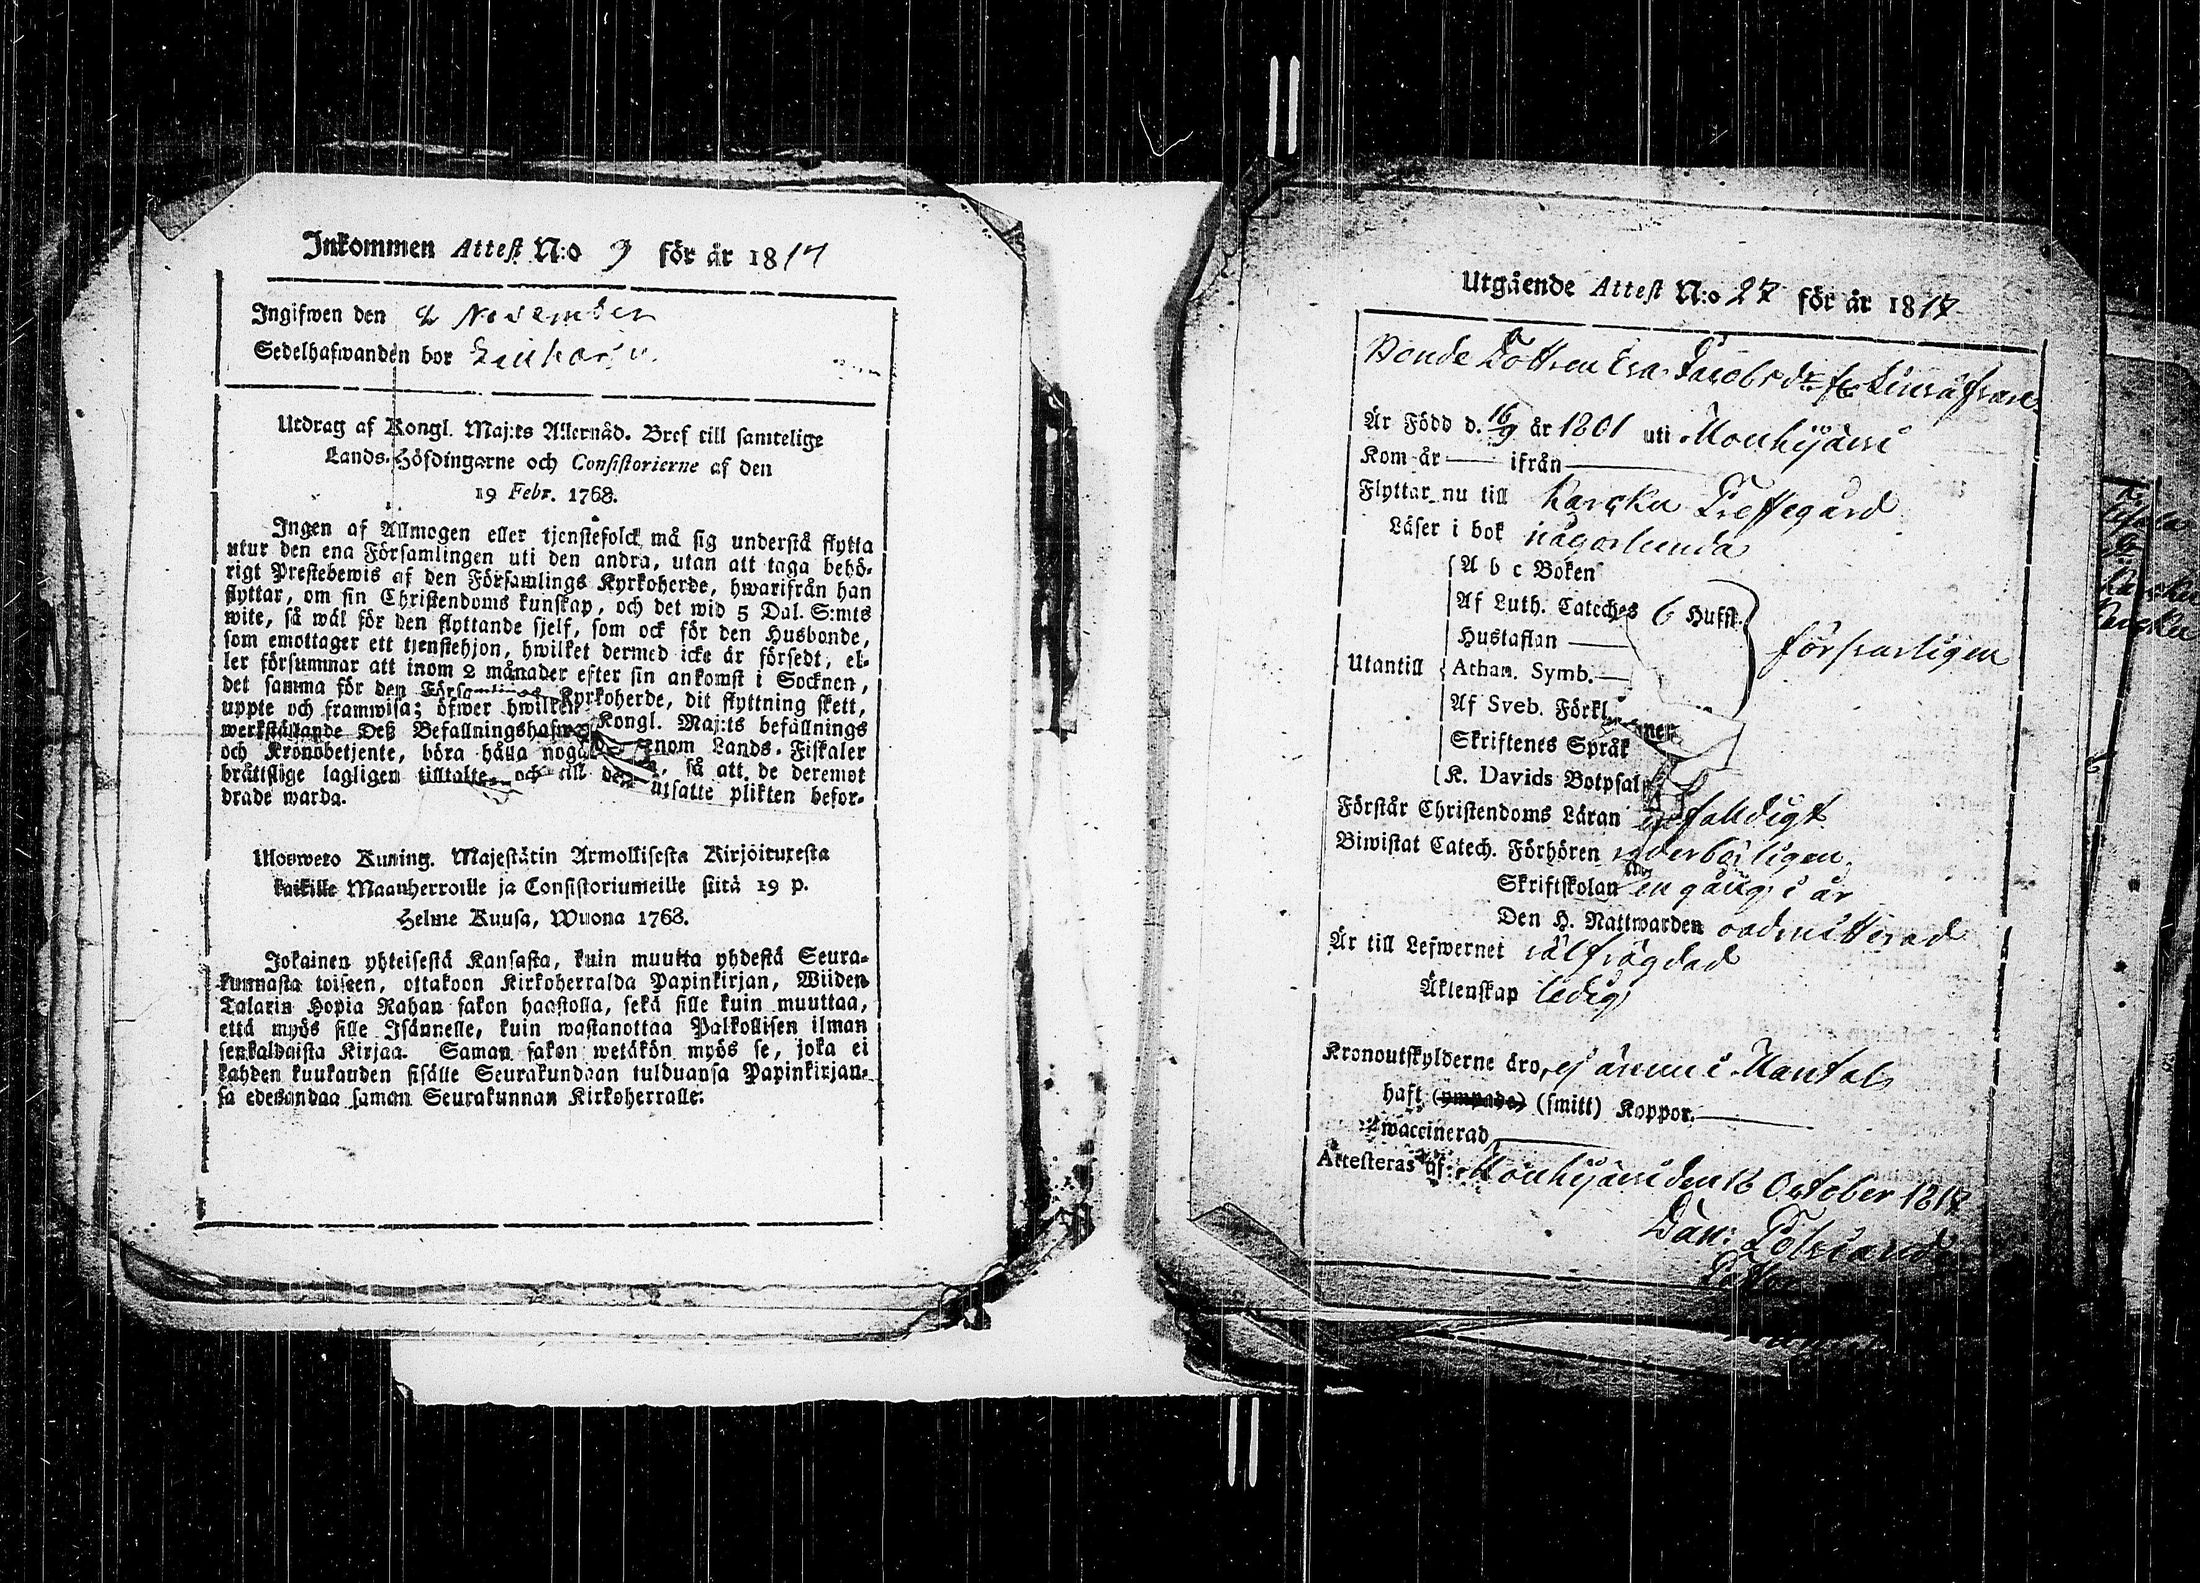 Inkommen Attest N:o 9 för år 1817
Ingifwen den 2 November
Sedelhafwanden bor
Utdrag af Kongl. Maj:ts Allernåd. Bref till samtelige
Lands-Höfdingarne och Consistorierne af den
19 Febr. 1768.
Ingen af Allmogen eller tjenstefolck må sig understå flytta
utur den ena Församlingen uti den andra, utan att taga behö-
rigt Prestebewis af den Församlings Kyrkoherde, hwarifrån han
flyttar, om sin Christendoms kunskap, och det wid 5 Dal. S:mts
wite, så wäl för den flyttande sjelf, som ock för den Husbonde,
som emottager ett tjenstehjon, hwilket dermed icke är försedt, el-
ler försummar att inom 2 månader efter sin ankomst i Socknen,
det samma för den Kyrkoherde, dit flyttning skett,
uppte och framwisa; öfwer hwilket Kongl. Maj:ts befallnings
werkställande Deß Befallningshafw
och Kronobetjente, böra hålla noga inom Lands-Fiskaler
bråttslige lagligen tilltalte och till den så att de deremot
utsatte plikten befor-
drade warda.
Uloswero Kuning. Majestätin Armollisesta Kirjoituxesta
kaikille Maanherroille ja Consistoriumeille siitä 19 p.
Helme Kuusa, Wuona 1768.
Jokainen yhteisestä Kansasta, kuin muutta yhdestä Seura-
kunnasta toiseen, ottakoon Kirkoherralda Papinkirjan, Wiiden
Talarin Hopia Rahan sakon haastolla, sekä sille kuin muuttaa,
että myös sille Isännelle, kuin wastanottaa Palkollisen ilman
senkaldaista Kirjaa. Saman sakon wetäkön myös se, joka ei
kahden kuukauden sisälle Seurakundaan tulduansa Papinkirjan-
sa edesandaa saman Seurakunnan Kirkoherralle.
Utgående Attest N:o 27 för år 1817
Bonde Dottren Eva Jacobsd:r fr.
Är Född d. 16/9 år 1801 uti Mouhijärvi
Kom år — ifrån —
Flyttar nu till Karcku Treffegård
Läser i bok någorlunda
A b c Boken
Af Luth. Cateches 6 Hufst.
Hustaflan —
förswarligen
Utantill Athan. Symb. —
Af Sveb. Förkl
Skriftenes Språk
K. Davids Botpsal
Förstår Christendoms Läran enfalldigt
Biwistat Catech. Förhören wederbörligen
Skriftskolan en gång i år
Den H. Nattwarden oadmitterad
Är till Lefwernet wälfrägdad
Äktenskap ledig
Kronoutskylderne äro, ej ännu i Mantal
haft (ympade) (smitt) Koppor. —
waccinerad —
Attesteras af: Mouhijärvi den 16 October 1817
Dan: Polviander